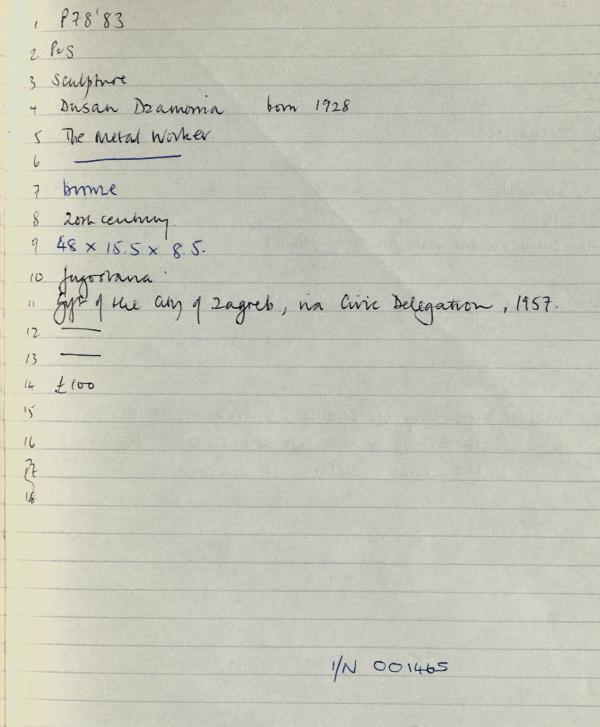 1 P78'83
2 P&S
3 Sculpture
4 Dusan Dzamonia born 1928
5 The Metal Worker
6
7 bronze
8 20th century
9 48 x 15.5 x 8.5.
10 Jugoslavia
11 Gift of the City of Zagreb, via Civic Delegation, 1957.
12
13
14 £100
15
16
17
18
I/N 001465